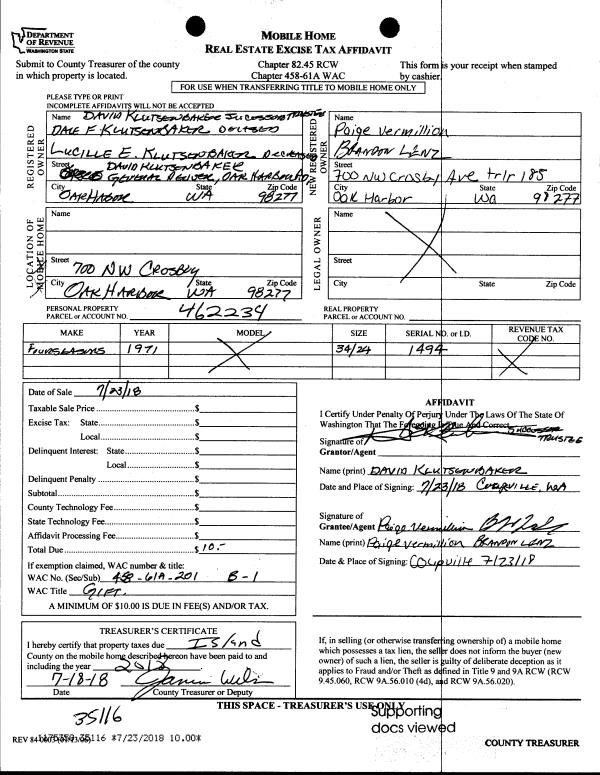 DEPARTMENT
OF REVENUE
WASHINGTON STATE
MOBILE HOME
REAL ESTATE EXCISE TAX AFFIDAVIT
Submit to County Treasurer of the county
in which property is located.
Chapter 82.45 RCW
Chapter 458-61A WAC
This form is your receipt when stamped
by cashier.
FOR USE WHEN TRANSFERRING TITLE TO MOBILE HOME ONLY
PLEASE TYPE OR PRINT
INCOMPLETE AFFIDAVITS WILL NOT BE ACCEPTED
REGISTERED
OWNER
Name DAVID KLUTSENBAKER SUCCESSOR TRUSTEE
DALE F KLUTSENBAKER DECEASED
LUCILLE E. KLUTSENBAKER DECEASED
DAVID KLUTSENBAKER
Street GENERAL DELIVER, OAK HARBOR
City State Zip Code
OAK HARBOR WA 98277
NEW REGISTERED
OWNER
Name
Paige Vermillion
BRANDON LENZ
Street
700 NW Crosby Ave trlr 185
City State Zip Code
Oak Harbor Wa 98277
LOCATION OF
MOBILE HOME
Name
Street 700 NW CROSBY
City State Zip Code
OAK HARBOR WA 98277
LEGAL OWNER
Name
Street
City State Zip Code
PERSONAL PROPERTY
PARCEL or ACCOUNT NO. 462234
REAL PROPERTY
PARCEL or ACCOUNT NO.
MAKE YEAR MODEL SIZE SERIAL NO. or I.D. REVENUE TAX
CODE NO.
1971 34/24 1494
Date of Sale 7/23/18
Taxable Sale Price $
Excise Tax: State $
Local $
Delinquent Interest: State $
Local $
Delinquent Penalty $
Subtotal $
County Technology Fee $
State Technology Fee $
Affidavit Processing Fee $
Total Due $ 10.-
If exemption claimed, WAC number & title:
WAC No. (Sec/Sub) 458-61A-201 B-1
WAC Title GIFT.
A MINIMUM OF $10.00 IS DUE IN FEE(S) AND/OR TAX.
AFFIDAVIT
I Certify Under Penalty Of Perjury Under The Laws Of The State Of
Washington That The Foregoing Is True And Correct.
SUCCESSOR
TRUSTEE
Signature of
Grantor/Agent
Name (print) DAVID KLUTSENBAKER
Date and Place of Signing: 7/23/18 COUPVILLE, WA
Signature of
Grantee/Agent Paige Vermillion
Name (print) Paige Vermillion BRANDON LENZ
Date & Place of Signing: Coupville 7/23/18
TREASURER'S CERTIFICATE
I hereby certify that property taxes due Island
County on the mobile home described hereon have been paid to and
including the year 2018
7-18-18
Date County Treasurer or Deputy
If, in selling (or otherwise transferring ownership of) a mobile home
which possesses a tax lien, the seller does not inform the buyer (new
owner) of such a lien, the seller is guilty of deliberate deception as it
applies to Fraud and/or Theft as defined in Title 9 and 9A RCW (RCW
9.45.060, RCW 9A.56.010 (4d), and RCW 9A.56.020).
THIS SPACE - TREASURER'S USE ONLY
35116
Supporting
docs viewed
35116 *7/23/2018 10.00*
COUNTY TREASURER